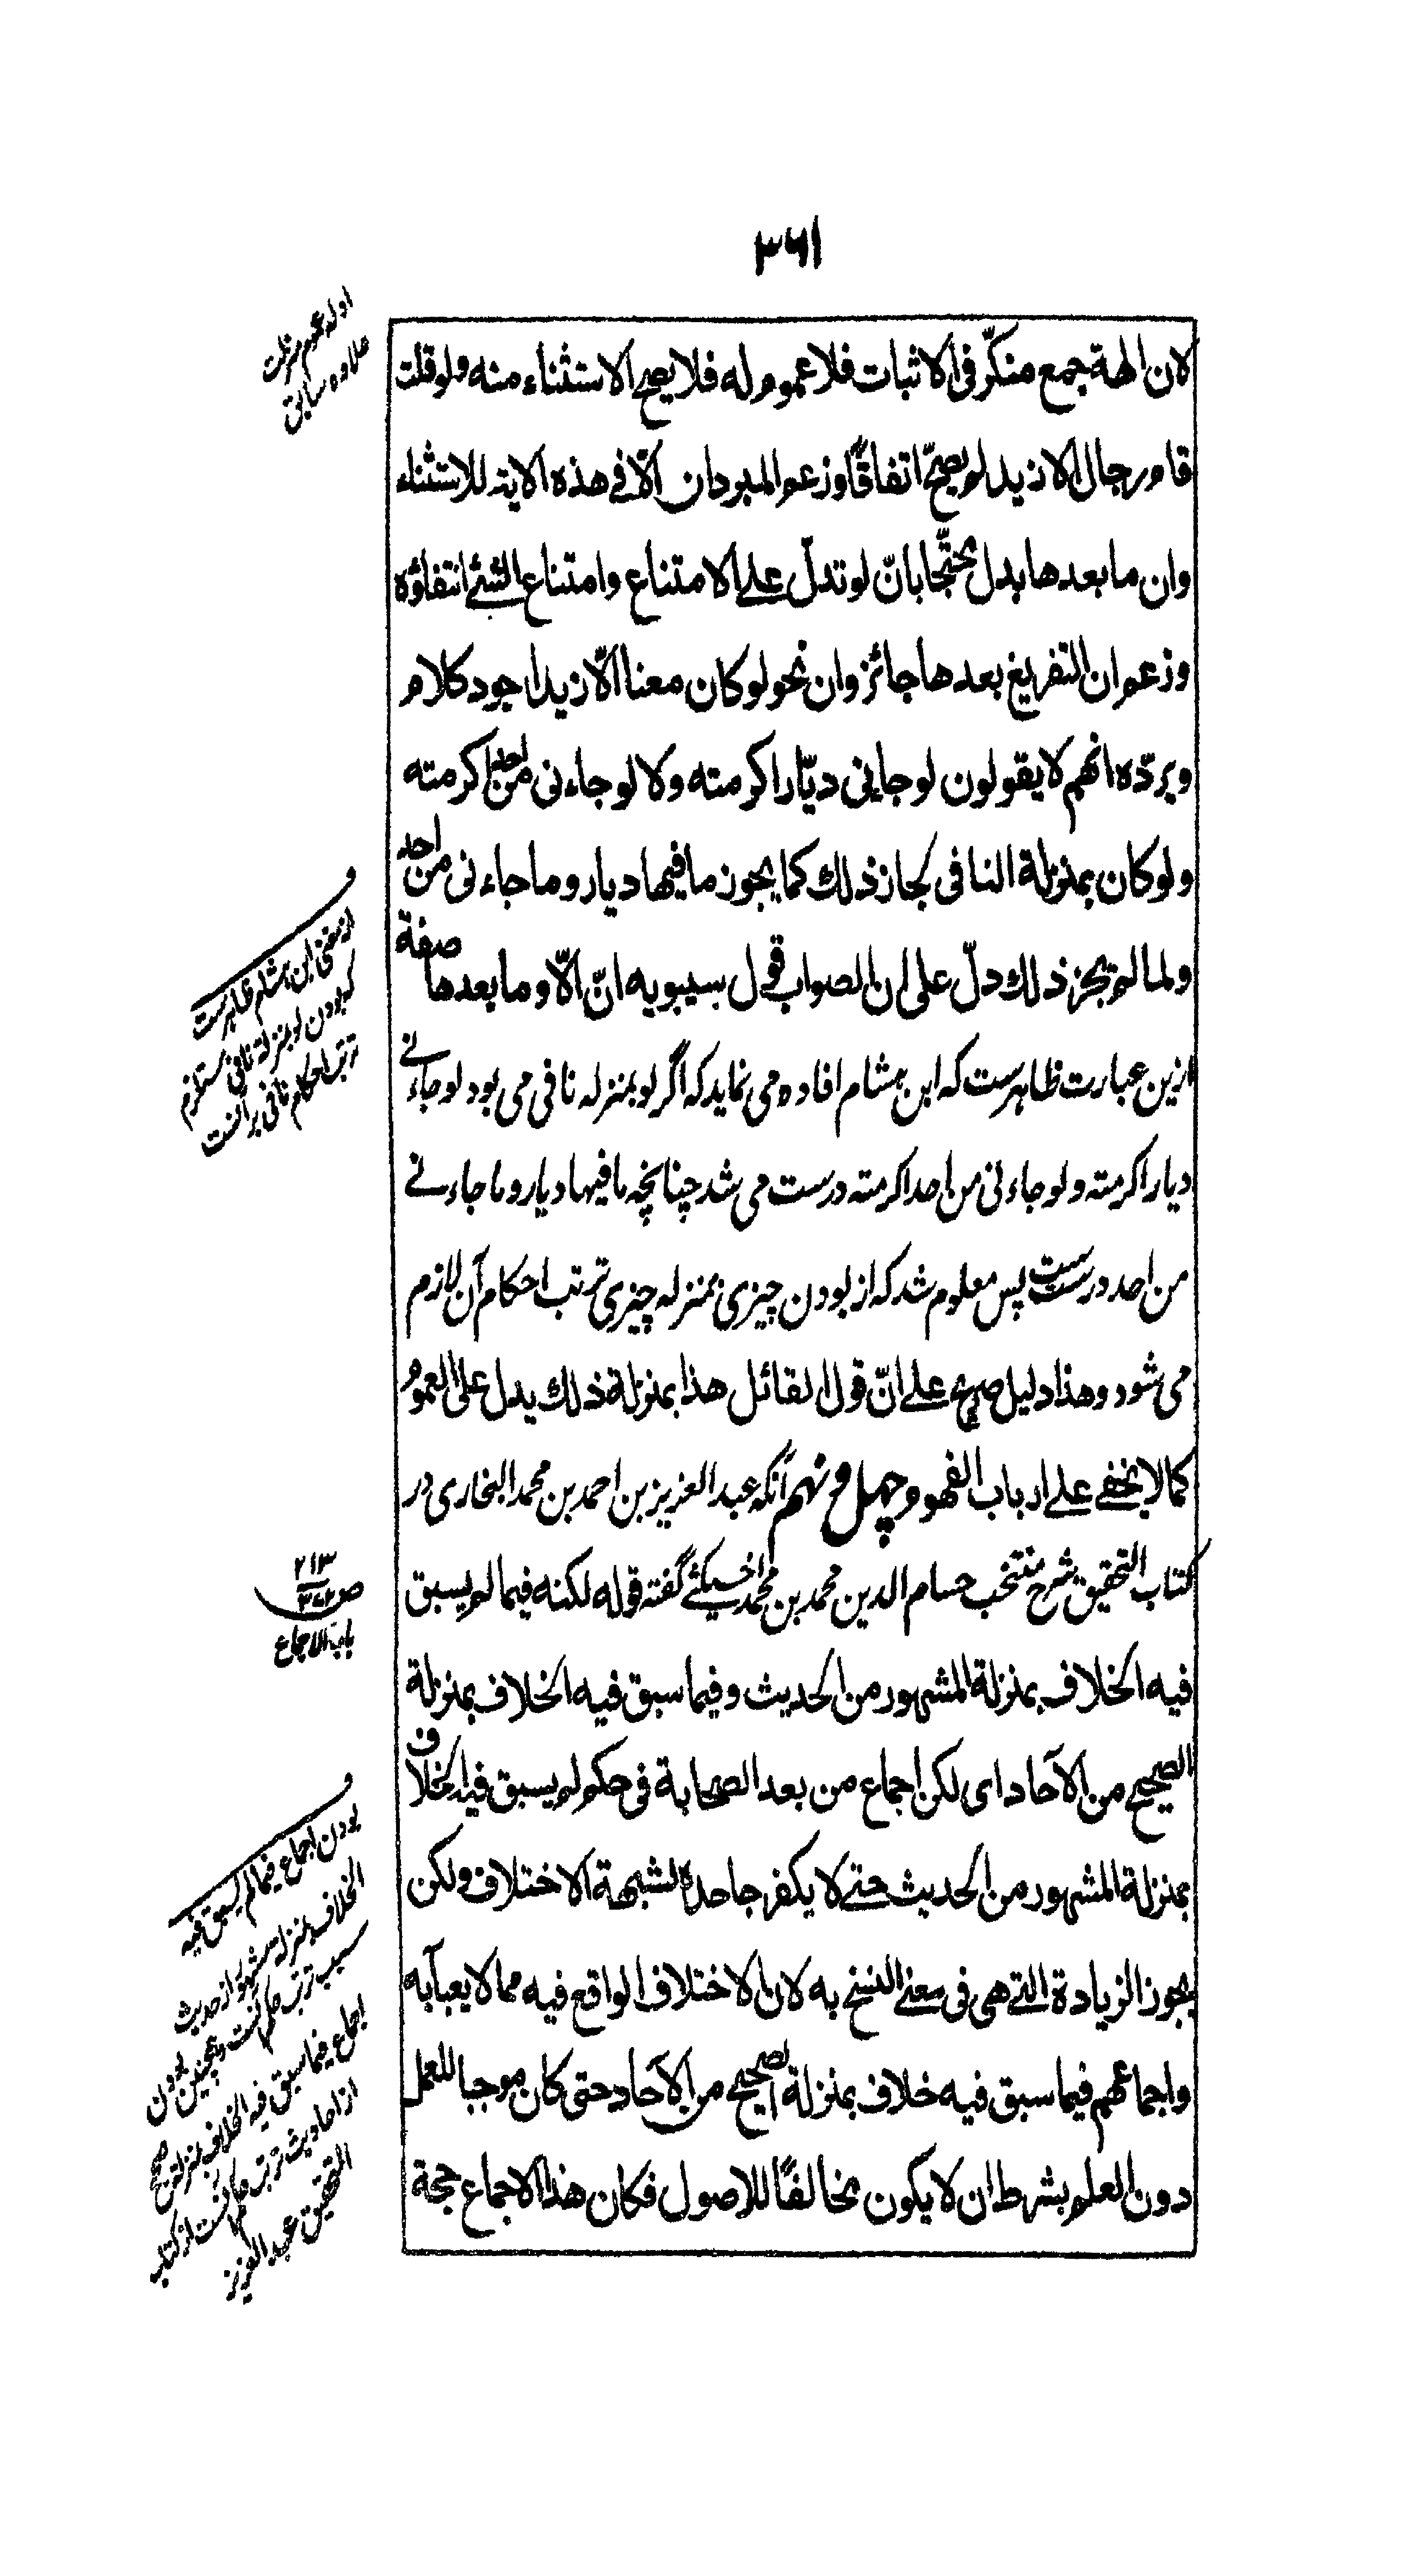 ۳۶۱
ادله عموم منزلت
علاوه سابق
لان الهة جمع منكّر فی الاثبات فلا عموم له فلا يصح الاستثناء منه ولو قلت
قام رجال الا زيد لم يصحّ اتفاقًا وزعم المبرد ان الّا فی هذه الاية للاستثناء
وان ما بعدها بدل محتّجا بانّ لو تدلّ علی الامتناع وامتناع الشئ انتفاؤه
وزعم ان التفريغ بعدها جائز وان نحو لو كان معنا الّا زيد اجود كلام
ويردّه انهم لا يقولون لو جاءنی ديّار اكرمته ولا لو جاءنی من احد اكرمته
ولو كان بمنزلة النافی لجاز ذلك كما يجوز ما فيها ديار وما جاءنی من احد
ولما لم يجز ذلك دلّ علی ان الصواب قول سيبويه انّ الّا وما بعدها صفة
ازین عبارت ظاهرست که ابن هشام افاده می نماید که اگر لو بمنزله نافی می بود لو جاءنی
دیار اکرمته و لو جاءنی من احد اکرمته درست می شد چنانچه ما فیها دیار و ما جاءنی
من احد درست ست پس معلوم شد که از بودن چیزی بمنزله چیزی ترتب احکام آن لازم
می شود وهذا دليل صريح علی انّ قول القائل هذا بمنزلة ذلك يدل علی العموم
كما لا يخفی علی ارباب الفهوم چهل و نهم آنکه عبد العزیز بن احمد بن محمد البخاری در
کتاب التحقیق شرح منتخب حسام الدین محمد بن محمد اخسیکثی گفته قوله لكنه فيما لم يسبق
فيه الخلاف بمنزلة المشهور من الحديث وفيما سبق فيه الخلاف بمنزلة
الصحيح من الآحاد ای لكن اجماع من بعد الصحابة فی حكم لم يسبق فيه الخلاف
بمنزلة المشهور من الحديث حتی لا يكفر جاحده لشبهة الاختلاف ولكن
يجوز الزيادة التی هی فی معنی النسخ به لان الاختلاف الواقع فيه مما لا يعبأ به
واجماعهم فيما سبق فيه خلاف بمنزلة الصحيح من الآحاد حتی كان موجبا للعمل
دون العلم بشرط ان لا يكون مخالفًا للاصول فكان هذا الاجماع حجة
و
از مغنی ابن هشام ظاهرست
که بودن لو بمنزلة نافی مستلزم
ترتب احکام نافی بر آنست
۲۱۳
باب الاجماع
و
بودن اجماع فیما لم یسبق فیه
الخلاف بمنزله مشهور از حدیث
سبب ترتب حکم آنست و همچنین بودن
اجماع فیما سبق فیه الخلاف بمنزله صحیح
از احادیث ترتب حکم آنست از کتاب
التحقیق عبد العزیز